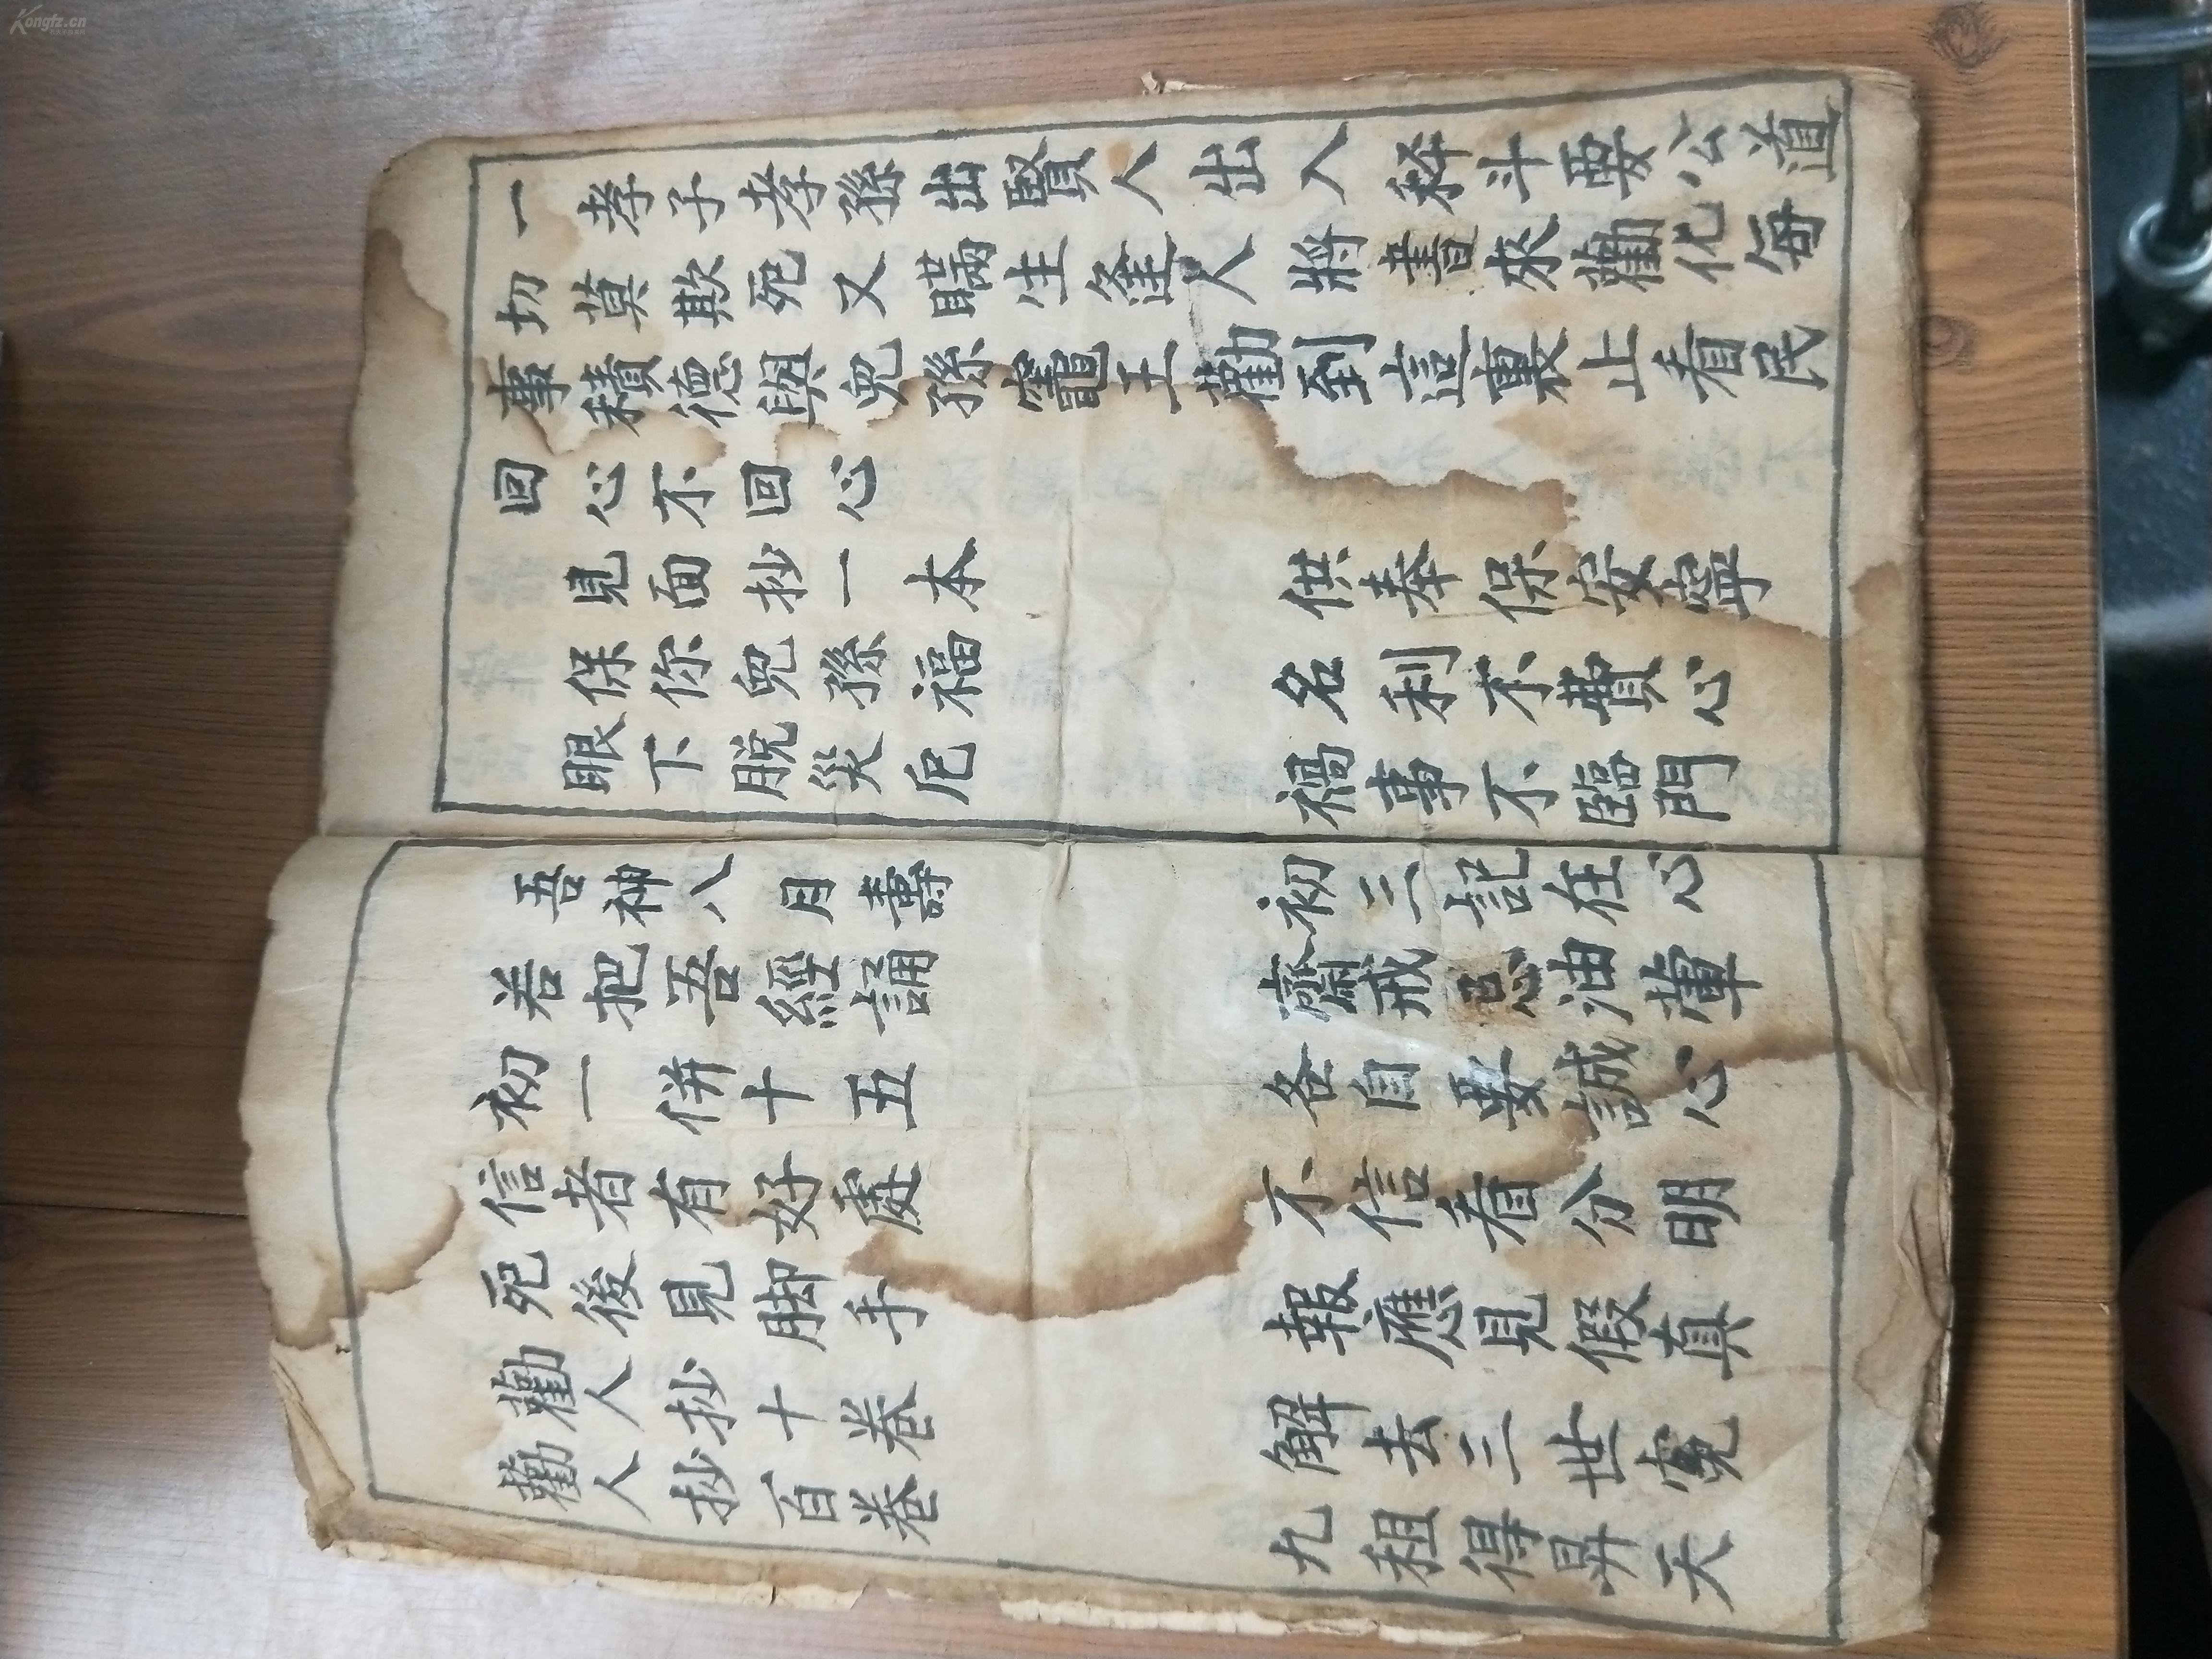 一孝子孝孫出賢人出入秤斗要公道
切莫欺死又瞞生逢人將書來勸化每
事積德與兒孫竈王勸到這裏止看民
回心不回心
見面抄一本 供奉保安寧
保你兒孫福 名利不費心
眼下脫災厄 禍事不臨門
吾神八月壽 初三記在心
若把吾經誦 齋戒忌油葷
初一併十五 各自要誠心
信者有好處 不信看分明
死後見脚手 報應見假真
勸人抄十卷 解去三世寃
勸人抄百卷 九祖得昇天
Kongfz.cn